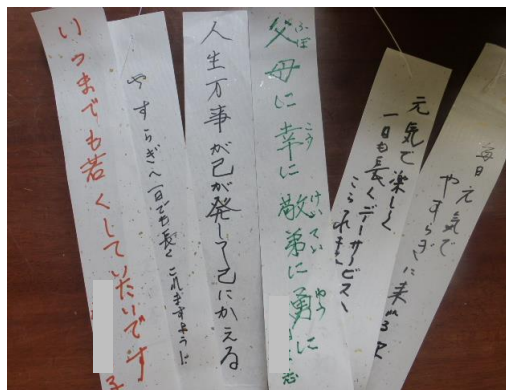 いつまでも若くしていたいです
やすらぎへ一日でも長く これますように
人生万事が己が発して己にかえる
父母に幸に敬弟に勇に
ふぼ
こう
けいてい
ゆう
元気で楽しく
一日も長くデーサービスへ
こられます
毎日元気で
やすらぎに来れる